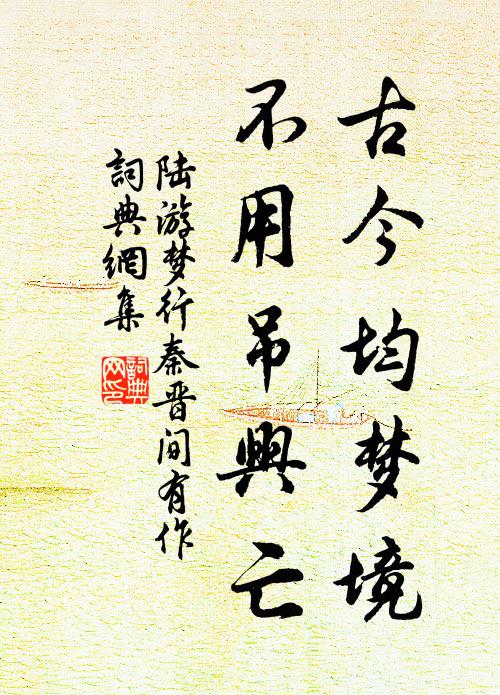 古今均梦境
不用吊興亡
陆游梦行秦晋间有作
詞典網集
詞典
网印